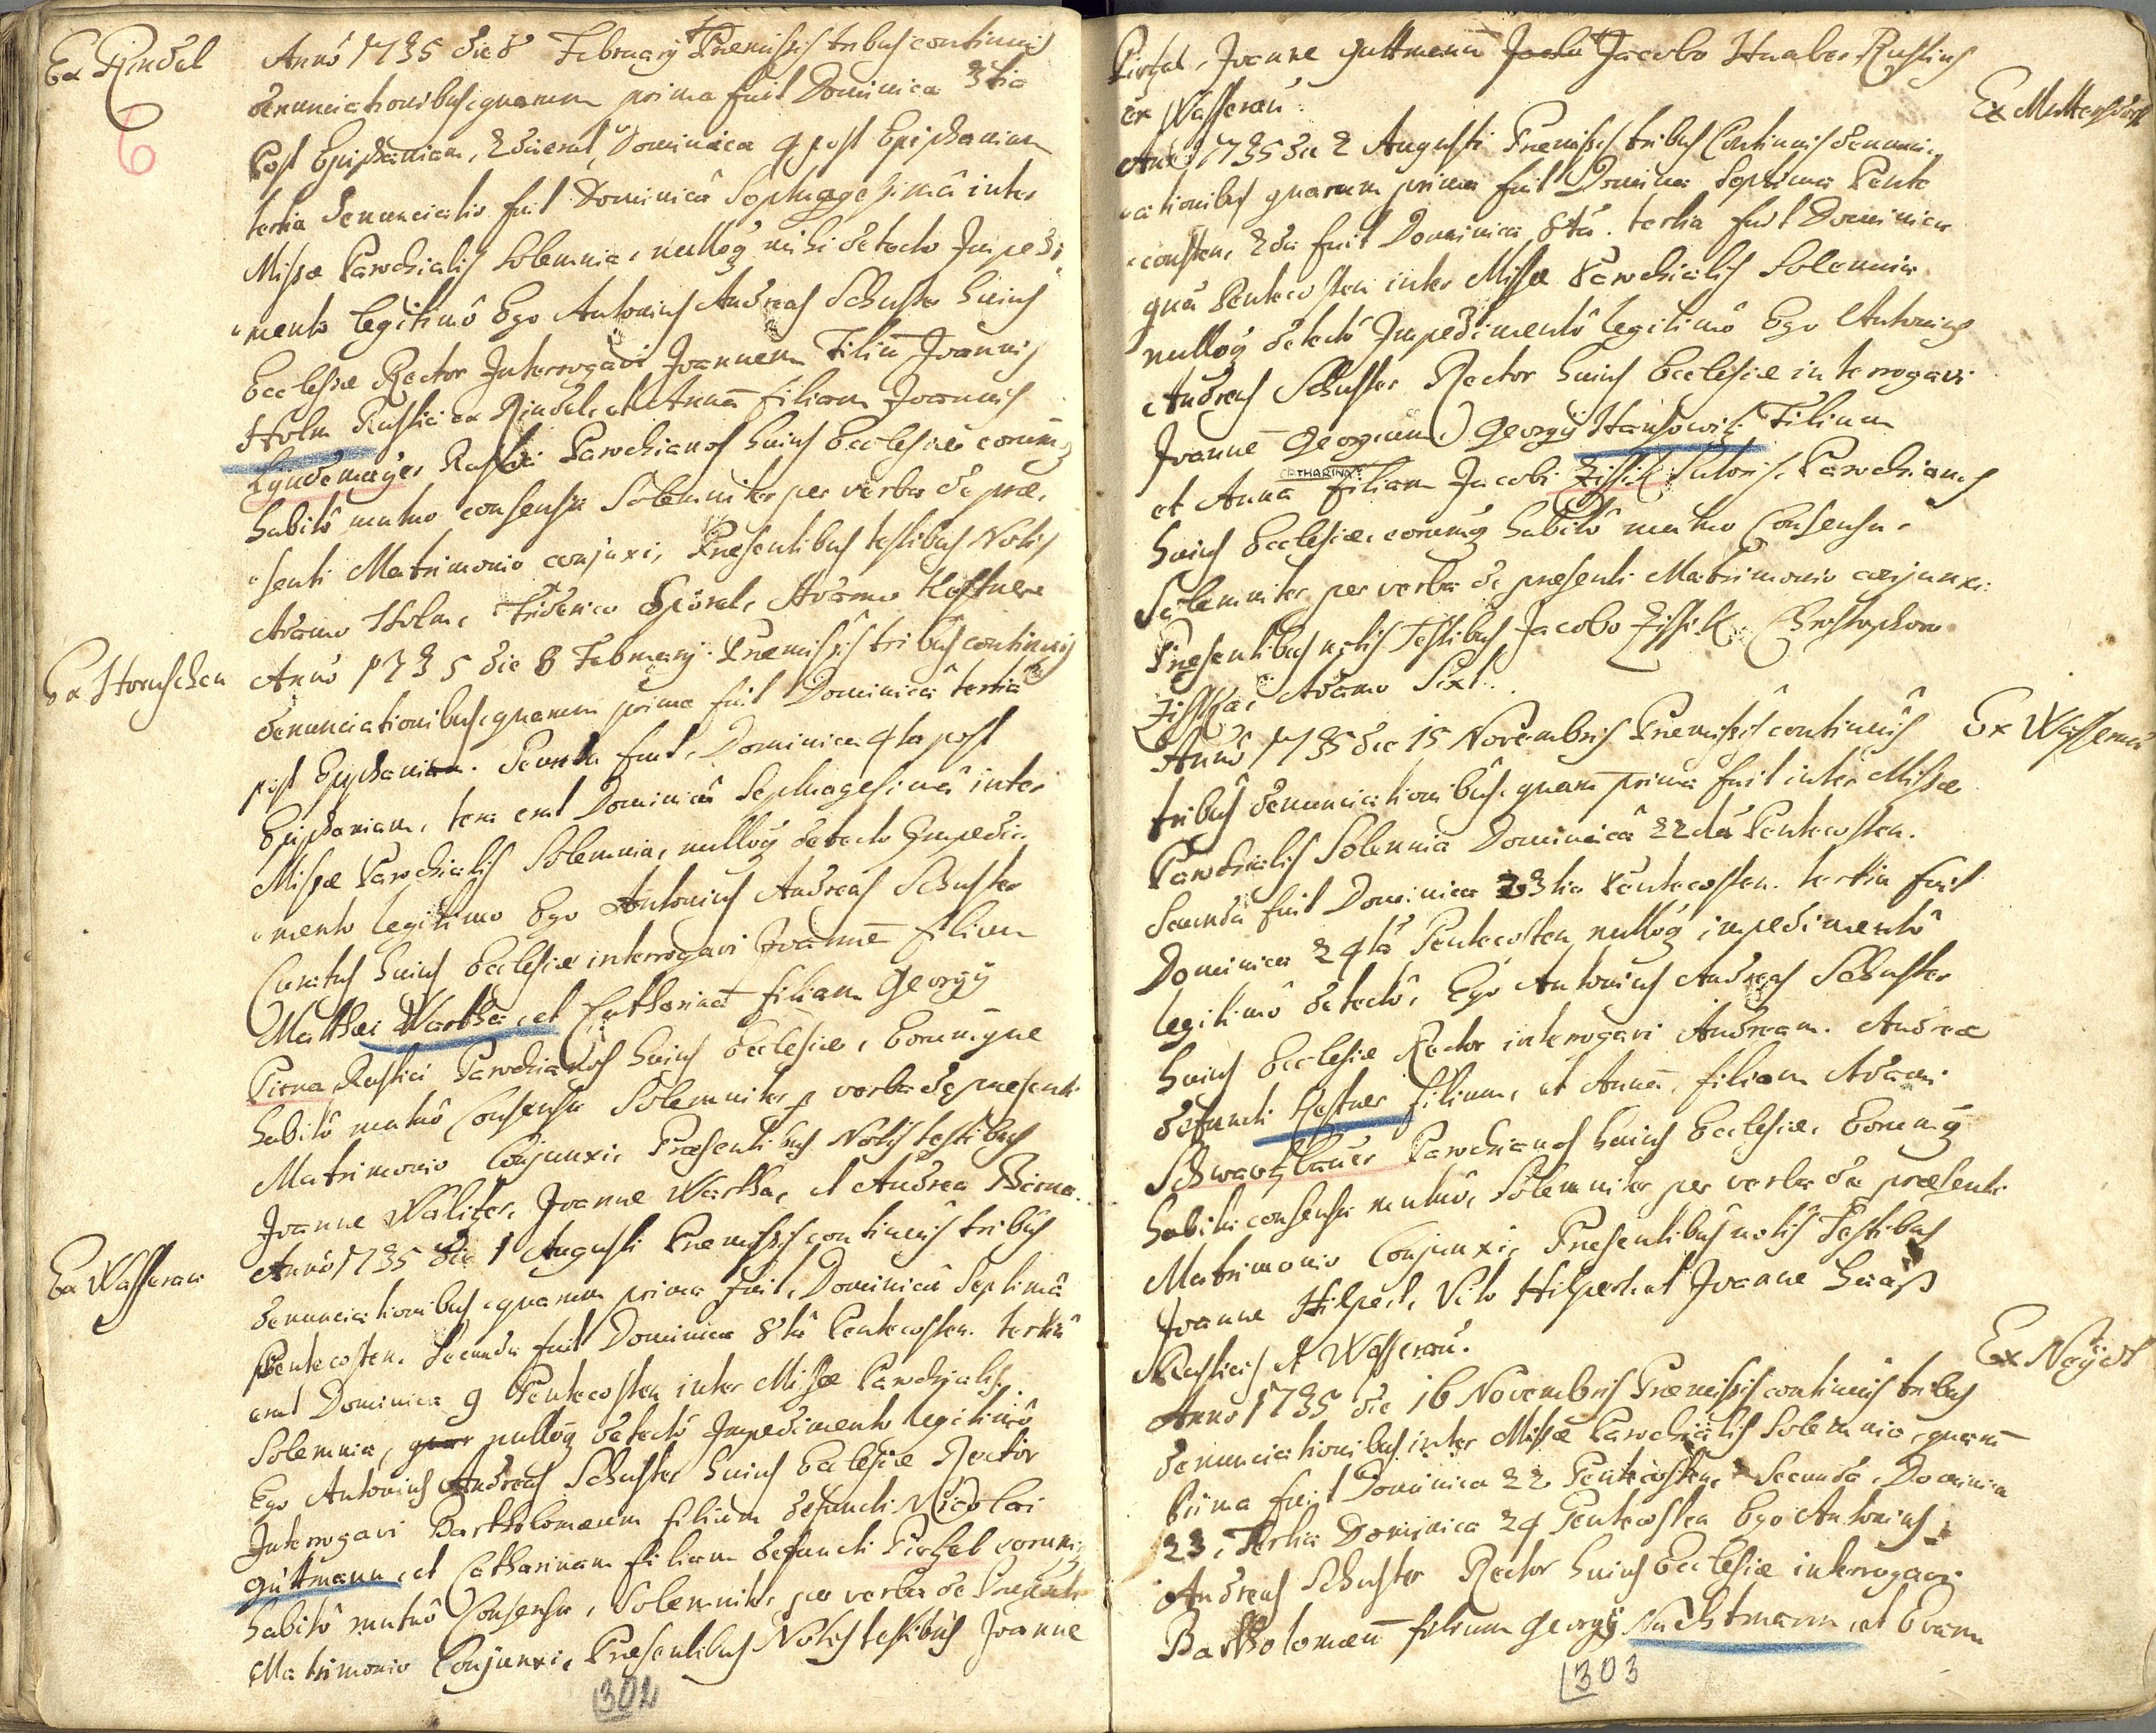 Ex Rindel
6
Anno 1735 die 8 February Praemissis tribus continuis
denunciationibus, quarum prima fuit Dominica 3tia
Post Epiphaniam, 2da erat, Dominica 4 post Epiphaniam
tertia denunciatio fuit Dominicâ Septuagesimâ inter
Missae Parochialis Solemnia, nulloq mihi detecto Impedi
mento legitimô Ego Antonius Andreas Schuster huius
Ecclesiae Rector Interrogavi Joannem Filiū Joannis
Holm Rustici ex Rindel, et Annā filiam Joannis
Lyndemayer Rustici Parochianos huius Ecclesiae eorumq
habitô mutuo consensu Solemniter per verba de prae
senti Matrimonio conjunxi, Praesentibus testibus Notis
Adamo Holm, Fiderico Spörel, Adamo Hostner
Ex Horuschen
Anno 1735 die 8 February Praemissis tribus continuis
denunciationibus, quarum prima fuit Dominicâ tertia
post Epiphaniam. Secunda fuit, Dominica 4ta post
Epiphaniam, tertia erat Dominicâ Septuagesimâ inter
Missae Parochialis Solemnia, nulloq detecto Impedi
mento legitimo Ego Antonius Andreas Schuster
Curatus huius Ecclesiae interrogavi Joannē filium
Matthaei Wartha, et Catharinā filiam Georgÿ
Pirna Rustici Parochianos huius Ecclesiae, Eorumque
habitô mutuô Consensu Solemniter p verba de praesenti
Matrimonio Conjunxi, Praesentibus Notis testibus
Joanne Walizer, Joanne Wartha, et Andrea Birna.
Ex Wasserau
Anno 1735 die 1 Augusti Praemissis continuis tribus
denunciationibus, quarum prima fuit, Dominicâ Septimâ
Pentecosten. Secunda fuit Dominica 8tâ Pentecosten. tertia
erat Dominica 9 Pentecosten inter Missae Parochialis
Solemnia, nulloq detectô Impedimento legitimô
Ego Antonius Andreas Schuster huius Ecclesiae Rector
Interrogavi Bartholomaeum filium defuncti Nicolai
Guttmann, et Catharinam filiam defuncti Pirhel eorumq
habitô mutuô Consensu, Solemniter per verba de Praesenti
Matrimonio Conjunxi, Praesentibus Notis testibus Joanne
302
Pirhel, Joanne Guttmann Jacobo Huaber Rusticis
ex Wasserau
Ex Muttersdorf
Anno 1735 die 2 Augusti Praemissis tribus Continuis denunci
ationibus quarum prima fuit Domina Septima Pente
costen, 2da fuit Dominica 8tâ. tertia fuit Dominica
9na Pentecosten inter Missae Parochialis Solemnia
nulloq detectô Impedimentô legitimô Ego Antonius
Andreas Schuster Rector huius Ecclesiae interrogavi
Joannē Georgium Georgÿ Hansowiz Filium
CATHARINA?
et Annā Filiam Jacobi Zissik Sutoris Parochianos
huius Ecclesiae, eorumq habitô mutuo Consensu
Solemniter per verba de praesenti Matrimonio conjunxi
Praesentibus notis Testibus Jacobo Zissik Christophoro
Zissika Adamo Pixl.
Ex Wasserau
Anno 1735 die 15 Novembris Praemissis continuis
tribus denunciationibus, quarum prima fuit inter Missae
Parochialis Solemnia Dominicâ 22da Pentecosten.
Secunda fuit Dominica 23tia Pentecosten. tertia fuit
Dominica 24ta Pentecosten, nulloq impedimentô
legitimô detectô, Ego Antonius Andreas Schuster
huius Ecclesiae Rector interrogavi Andream. Andreae
defuncti Hostner filium, et Annā, filiam Adami
Schwartzbauer Parochianos huius Ecclesiae, Eorumq
habito consensu mutuô, Solemniter per verba de praesenti
Matrimonio Conjunxi, Praesentibus notis Testibus
Joanne Hilpert, Vito Hilpert et Joanne Haaß
Rusticis et Wasserau.
Ex Nayed
Anno 1735 die 16 Novembris Praemissis continuis tribus
denunciationibus inter Missae Parochialis Solemnia, quarū
Prima fuit Dominica 22 Pentecosten, Secunda, Dominica
23, Tertia Dominica 24 Pentecosten Ego Antonius
Andreas Schuster Rector huius Ecclesiae interrogavi
Bartholomaeū filium Georgÿ Nachtmann, et Evam
303